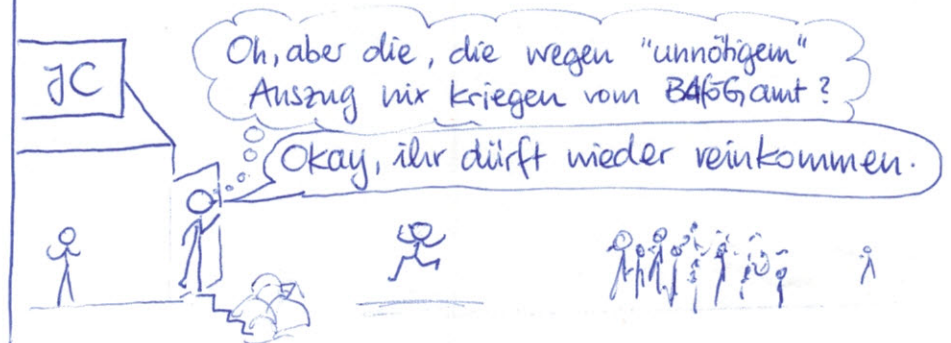 JC
Oh, aber die, die wegen "unnötigem"
Auszug nix kriegen vom BAföG, amt?
Okay, ihr dürft wieder reinkommen.